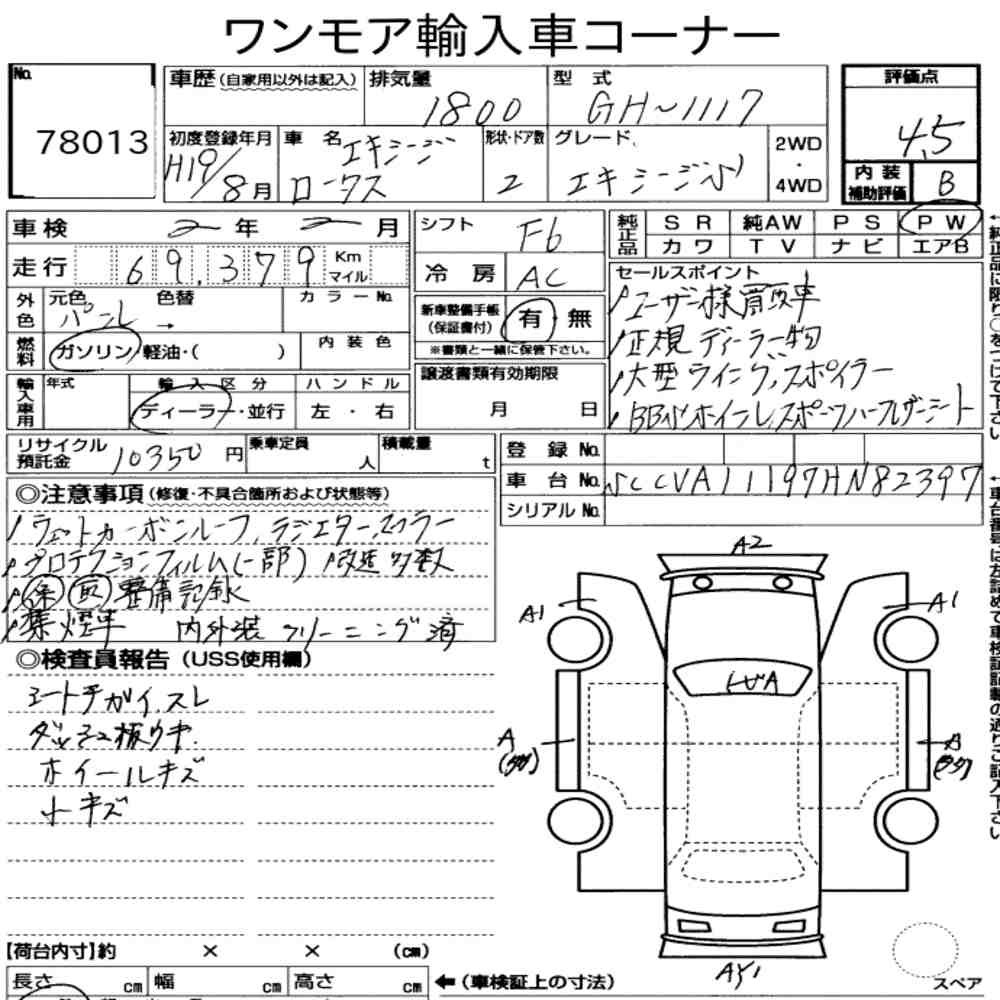 ワンモア輸入車コーナー
No. 78013
車歴(自家用以外は記入)
排気量 1800
型 式 GH~1117
評価点 4.5
内装補助評価 B
初度登録年月 H19/8月
車 名 エキシージ
ロータス
形状・ドア数 2
グレード エキシージS
2WD・4WD
車検 2年 2月
走行 69,379 Km マイル
シフト F6
冷房 AC
純正品 SR 純AW PS PW
カワ TV ナビ エアB
外色 元色 パール 色替 → カラーNo.
燃料 ガソリン・軽油・( )
内装色
新車整備手帳(保証書付) 有・無
※書類と一緒に保管下さい。
セールスポイント
ユーザー様買取車
正規ディーラー物
大型ウイング、スポイラー
輸入車用 年式
輸入区分 ディーラー・並行
ハンドル 左・右
譲渡書類有効期限
月 日
リサイクル預託金 10350円
乗車定員 人
積載量 t
登 録 No.
車 台 No. SCCVA11197HN82397
シリアル No.
◎注意事項(修復・不具合箇所および状態等)
プロテクションフィルム(一部) 改造多数
整備記録
禁煙車 内外装クリーニング済
◎検査員報告(USS使用欄)
シートチガイ、スレ
ホイールキズ
小キズ
A2
A1
A1
A
A
A51
【荷台内寸】約 × × (cm)
長さ cm 幅 cm 高さ cm
←(車検証上の寸法)
スペア
←純正品に限り○をつけて下さい
←車台番号は左詰めで車検証記載の通りご記入下さい